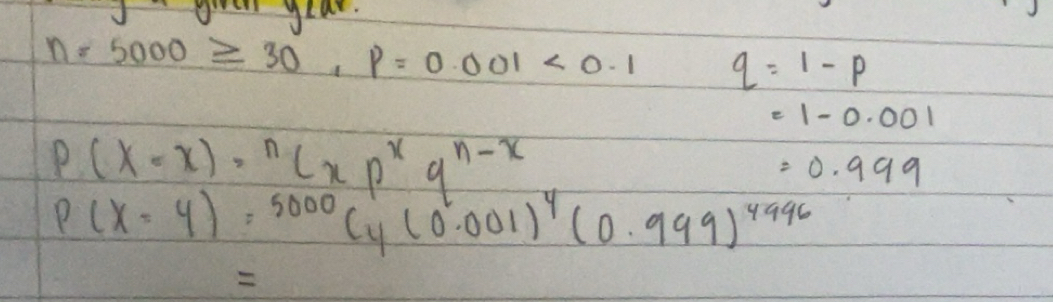 given year.
n = 5000 ≥ 30, p = 0.001 < 0.1 q = 1 - p
= 1 - 0.001
P(X = x) = ⁿCx pˣ qⁿ⁻ˣ = 0.999
P(X = 4) = ⁵⁰⁰⁰C₄ (0.001)⁴ (0.999)⁴⁹⁹⁶
=